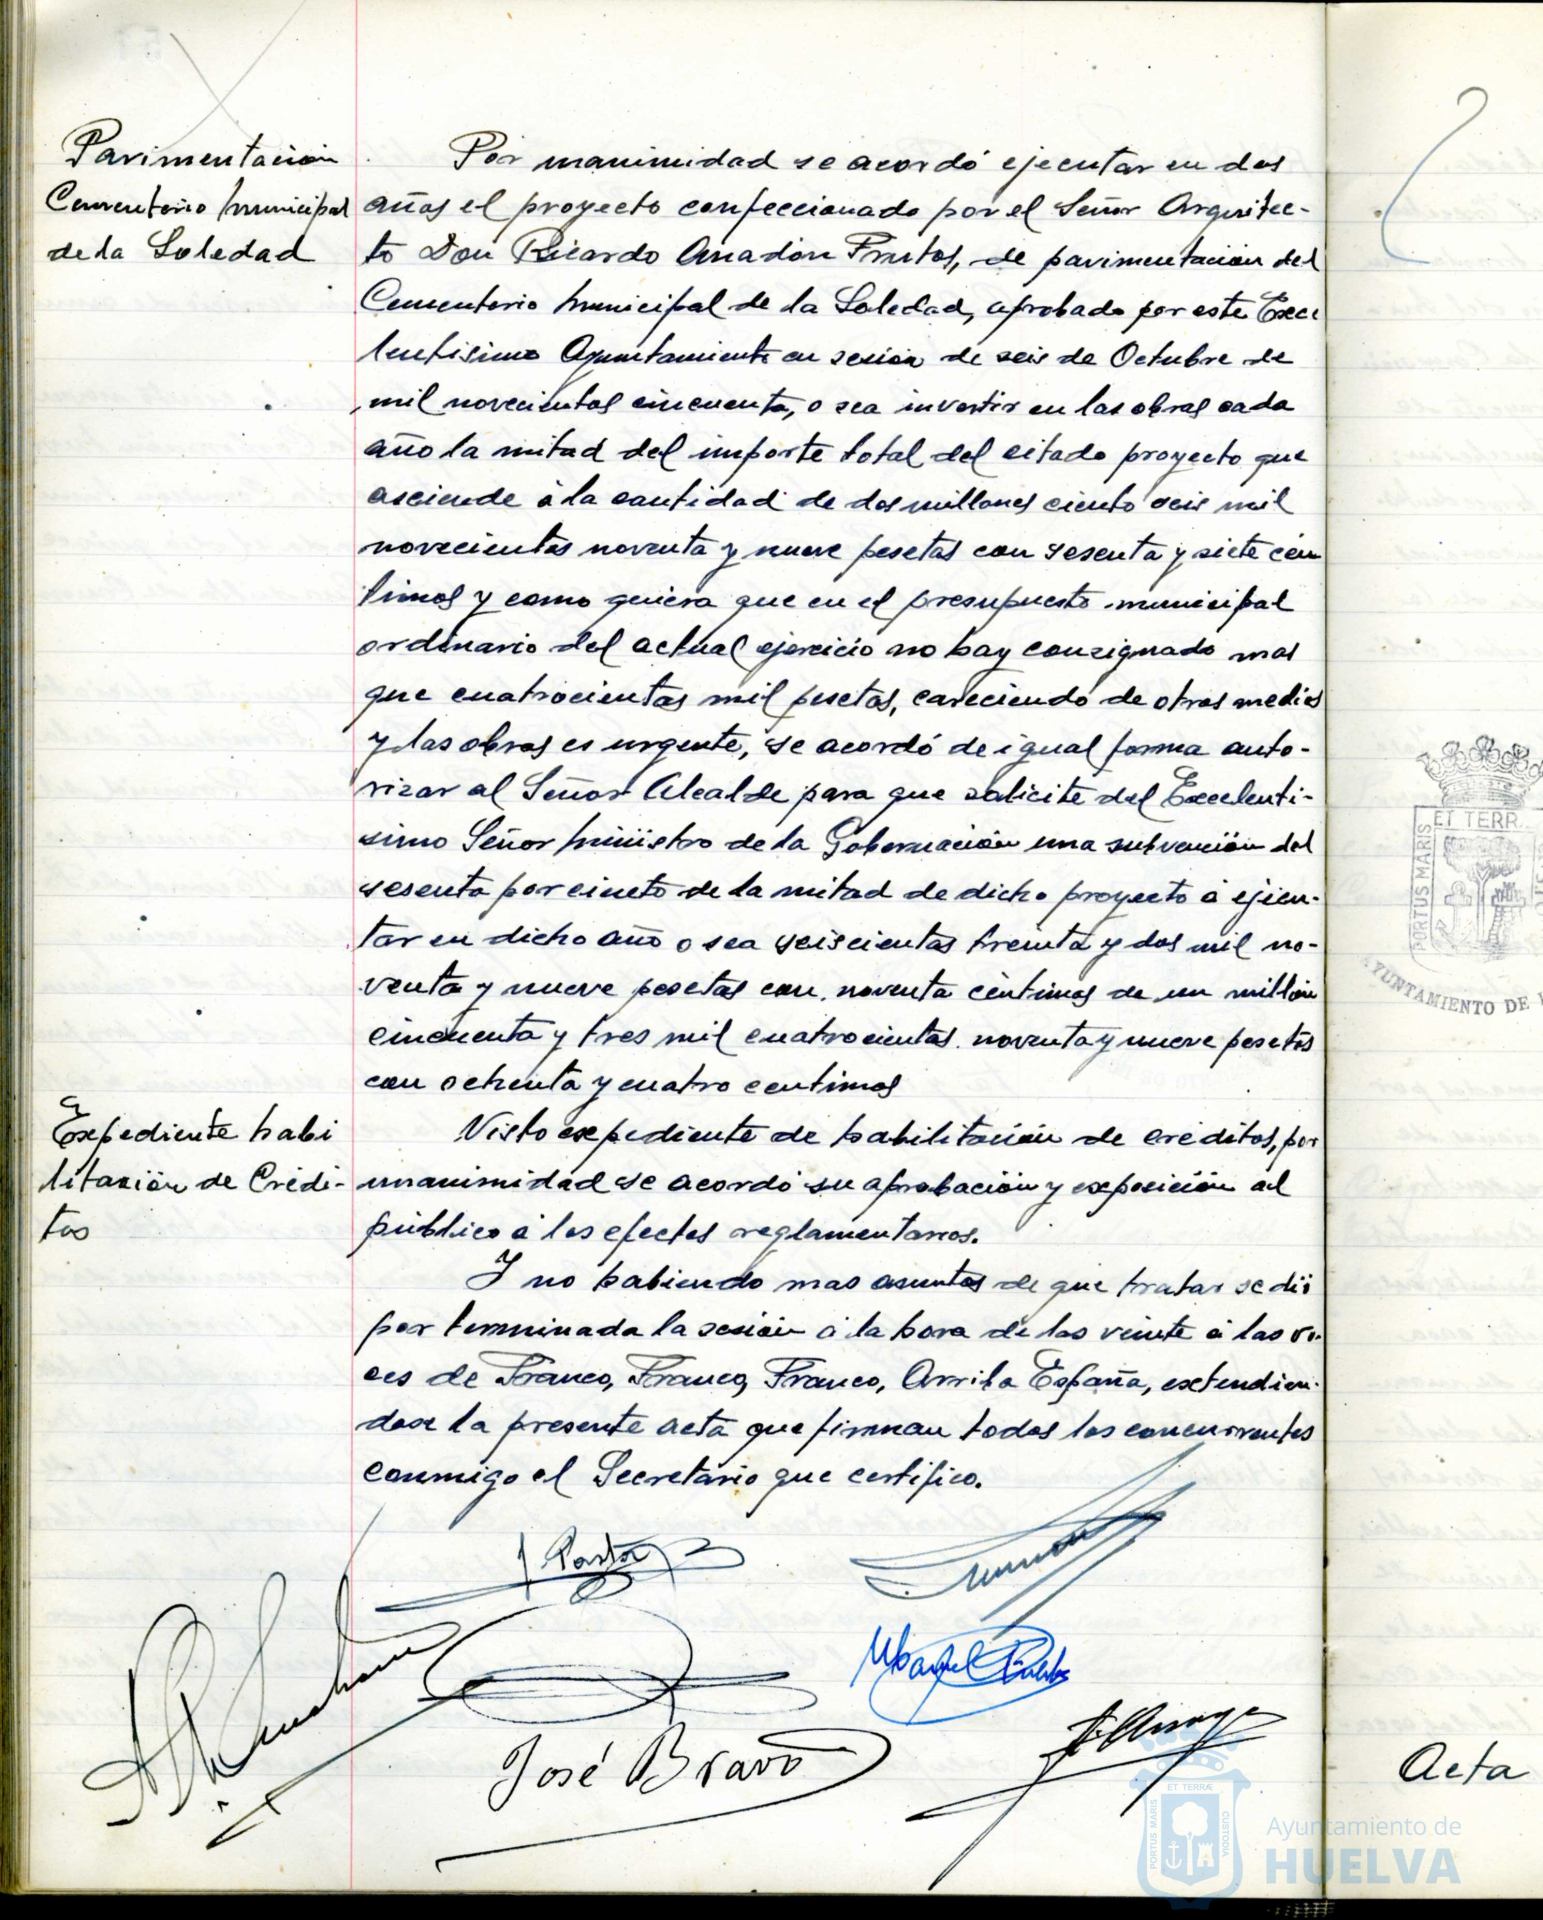 Pavimentación
Cementerio Municipal
de la Soledad
Por unanimidad se acordó ejecutar en dos
años el proyecto confeccionado por el Señor Arquitec-
to Don Ricardo Anadón Frutos, de pavimentación del
Cementerio Municipal de la Soledad, aprobado por este Exce
lentisimo Ayuntamiento en sesión de seis de Octubre de
mil novecientos cincuenta, o sea invertir en las obras cada
año la mitad del importe total del citado proyecto que
asciende á la cantidad de dos millones ciento seis mil
novecientas noventa y nueve pesetas con sesenta y siete cén
timos y como quiera que en el presupuesto municipal
ordinario del actual ejercicio no hay consignado mas
que cuatrocientas mil pesetas, careciendo de otros medios
y las obras es urgente, se acordó de igual forma auto-
rizar al Señor Alcalde para que solicite del Excelenti-
simo Señor Ministro de la Gobernación una subvención del
sesenta por ciento de la mitad de dicho proyecto á ejecu-
tar en dicho año o sea seiscientas treinta y dos mil no-
venta y nueve pesetas con noventa céntimos de un millón
cincuenta y tres mil cuatrocientas noventa y nueve pesetas
con ochenta y cuatro centimos
Expediente habi
litación de Crédi-
tos
Visto expediente de habilitación de créditos, por
unanimidad se acordó su aprobación y exposición al
público á los efectos reglamentarios.
Y no habiendo mas asuntos de que tratar se dió
por terminada la sesión á la hora de las veinte á las vo-
ces de Franco, Franco, Franco, Arriba España, extendien-
dose la presente acta que firman todos los concurrentes
conmigo el Secretario que certifico.
José Bravo
ET TERR
PORTUS MARIS
AYUNTAMIENTO DE
Acta
ET TERRÆ
PORTUS MARIS
CUSTODIA
Ayuntamiento de
HUELVA